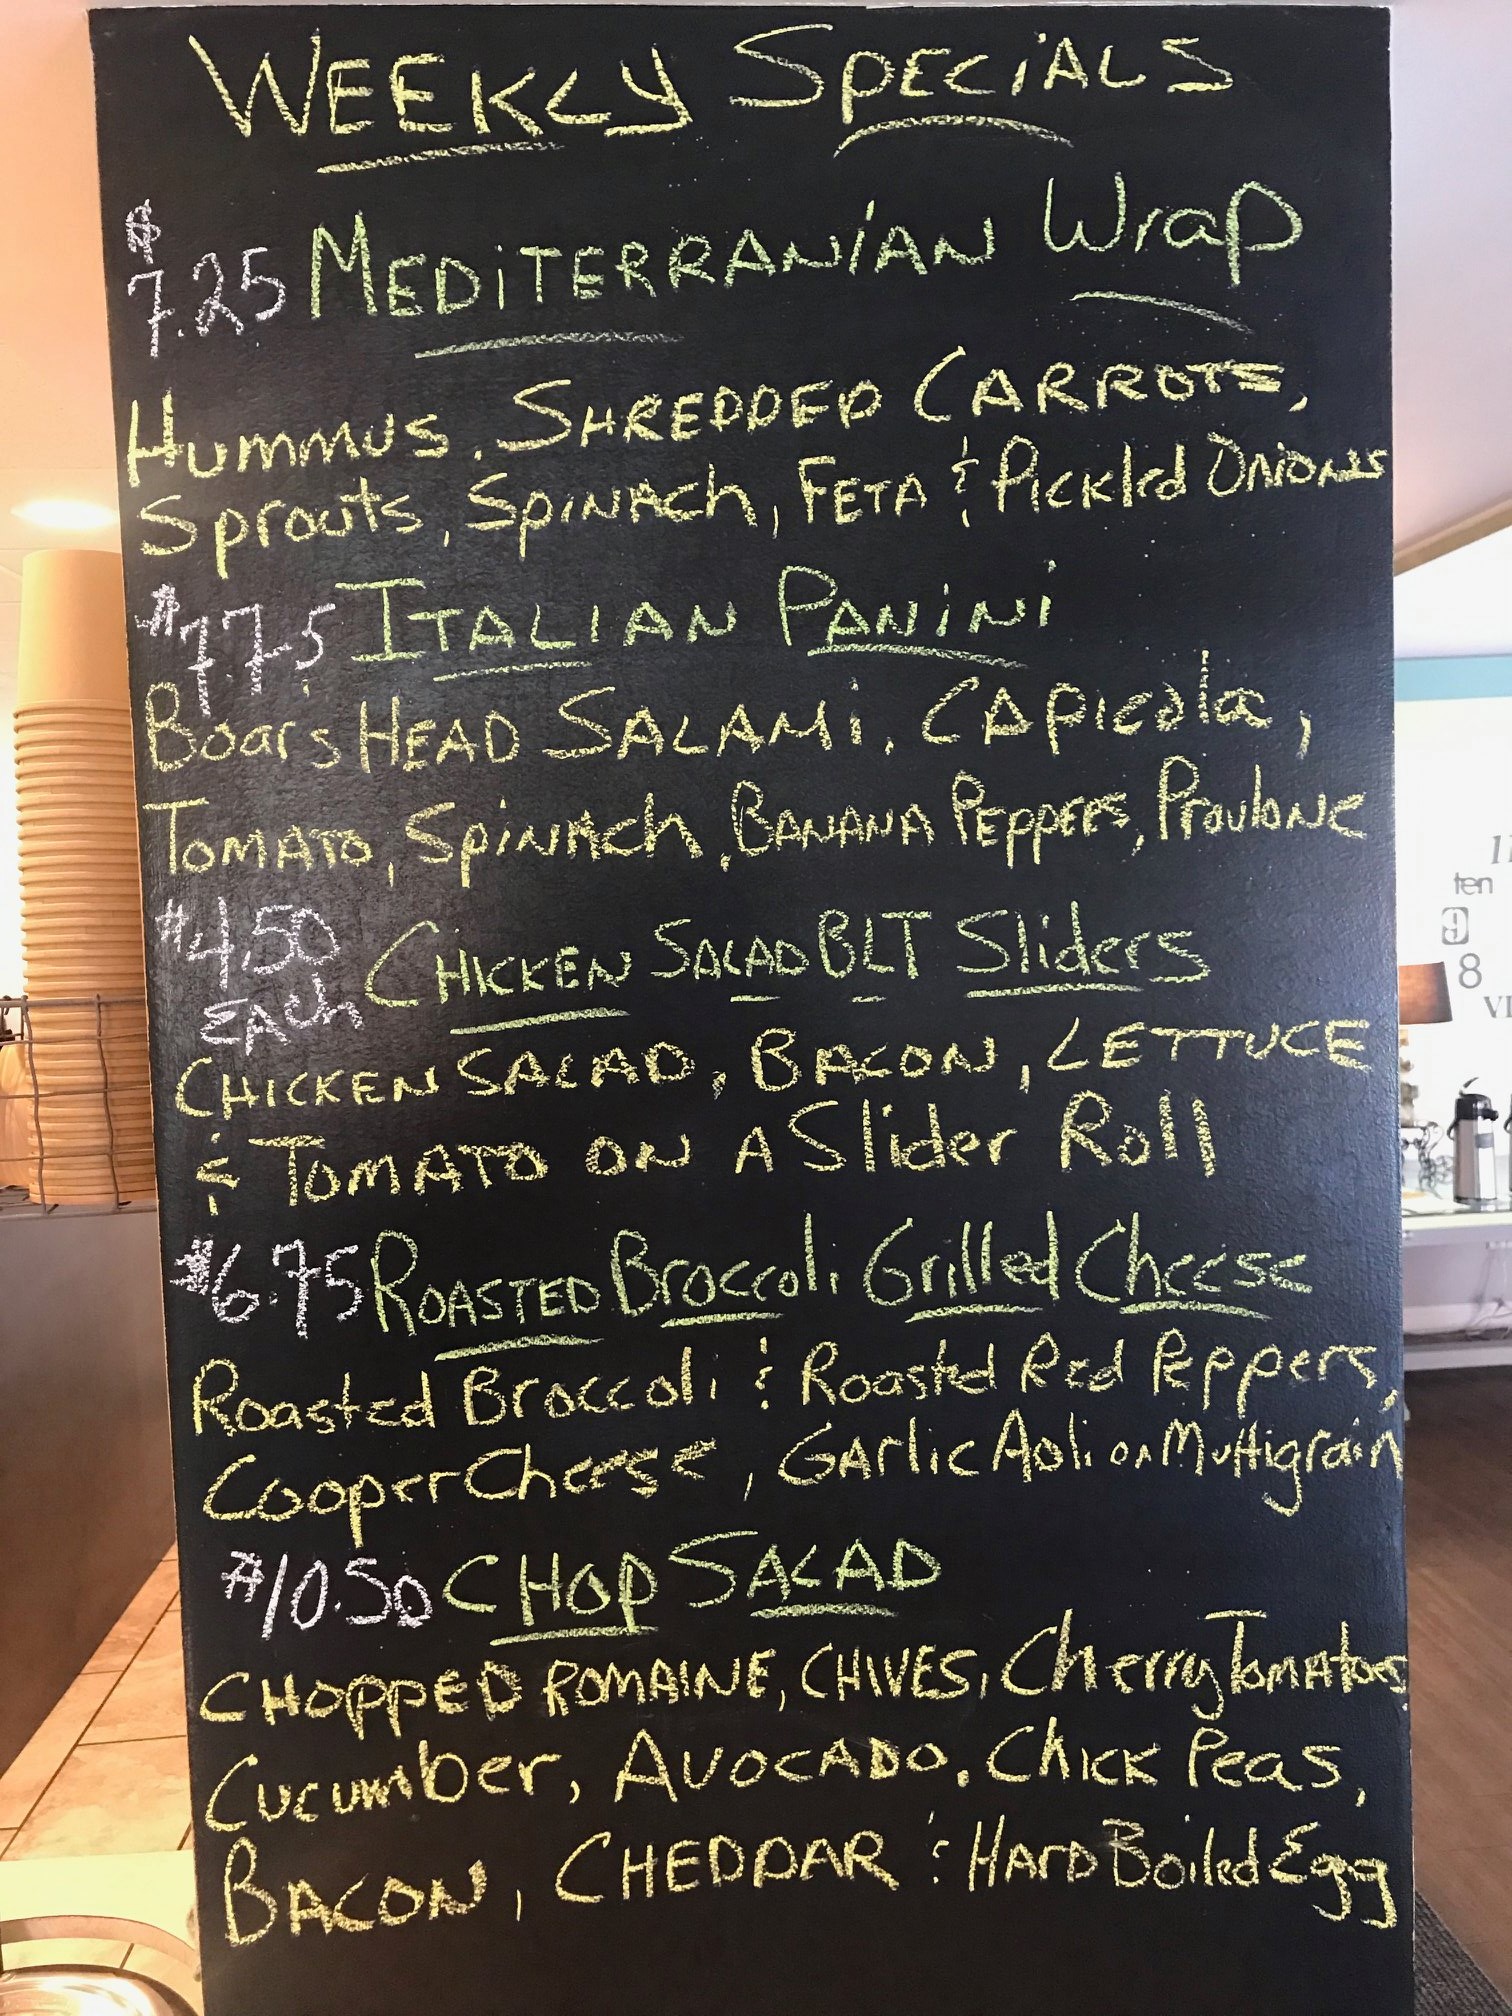 WEEKLY SPECIALS
$7.25 MEDITERRANIAN Wrap
HUMMUS, SHREDDED CARROTS,
Sprouts, SPINACH, FETA & Pickled ONIONS
$7.75 ITALIAN PANINI
Boars HEAD SALAMI, CAPICOLA,
TOMATO, SPINACH, BANANA PEPPERS, Provlone
$4.50 EACH CHICKEN SALAD BLT Sliders
CHICKEN SALAD, BACON, LETTUCE
& TOMATO ON A Slider Roll
$6.75 ROASTED Broccoli Grilled Cheese
Roasted Broccoli & Roasted Red Peppers,
Cooper Cheese, GARlic Aoli on Multigrain
$10.50 CHOP SALAD
CHOPPED ROMAINE, CHIVES, Cherry TOMATOES
Cucumber, AVOCADO, Chick Peas,
BACON, CHEDDAR & HARD Boiled Egg
ten
9
8